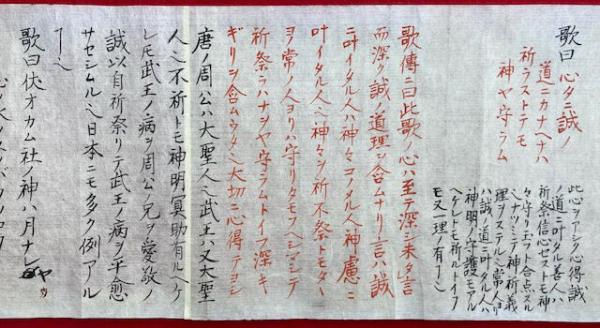 歌曰 心タニ誠ノ
道ニカナヘナハ
祈ラストテモ
神ヤ守ラム
此心ヲアシク心得誠
ノ道ニ叶タル善人ハ
祈祭信心ゼストモ神
々守リエフト合点スル
神祈義
理ヲステル 常人ヨリ
ハ誠ノ道ニ叶タル人ハ
神明ノ守護モアル
ヘケレトモ祈ルトイフ
モ又一理ノ有
歌傳ニ曰此歌ノ心ハ至テ深シ未タ言
而深ク誠ノ道理ヲ含ムナリ言ハ誠
ニ叶イタル人ハ神々コノタル人神慮ニ
叶イタル人 神々シ祈不祭トモタヽ
ヲ常ノ人ヨリハ守リタモフヘシマシテ
祈祭ラハナシヤ守ラムトイフ深キ
ギリヲ含ムウタ 大切ニ心得テヨシ
唐ノ周公ハ大聖人 武王ハ又大聖
人 不祈トモ神明冥助有ルヘケ
レトモ武王ノ病ヲ周公ノ兄ヲ愛敬ノ
誠以自祈祭リテ武王ノ病ヲ平愈
サセシムル 日本ニモ多ク例アル
歌曰伏オカム社ノ神ハ月ナレヤ